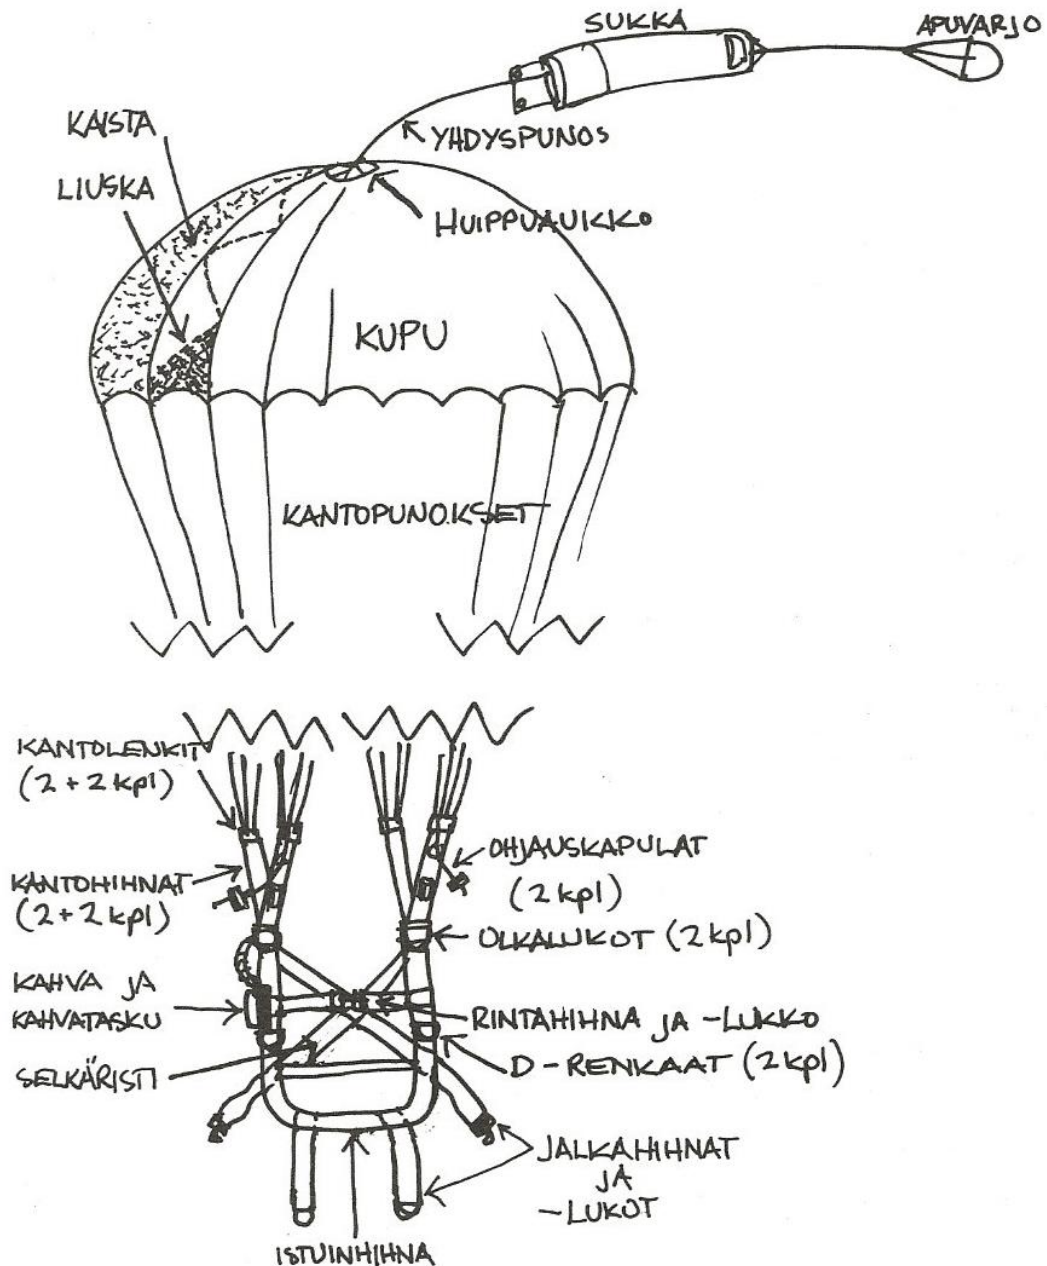 SUKKA
APUVARJO
KAISTA
YHDYSPUNOS
LIUSKA
HUIPPUAUKKO
KUPU
KANTOPUNOKSET
KANTOLENKIT
(2+2 kpl)
OHJAUSKAPULAT
(2 kpl)
KANTOHIHNAT
(2+2 kpl)
OLKALUKOT (2 kpl)
KAHVA JA
KAHVATASKU
RINTAHIHNA JA -LUKKO
D-RENKAAT (2 kpl)
SELKÄRISTI
JALKAHIHNAT
JA
-LUKOT
ISTUINHIHNA